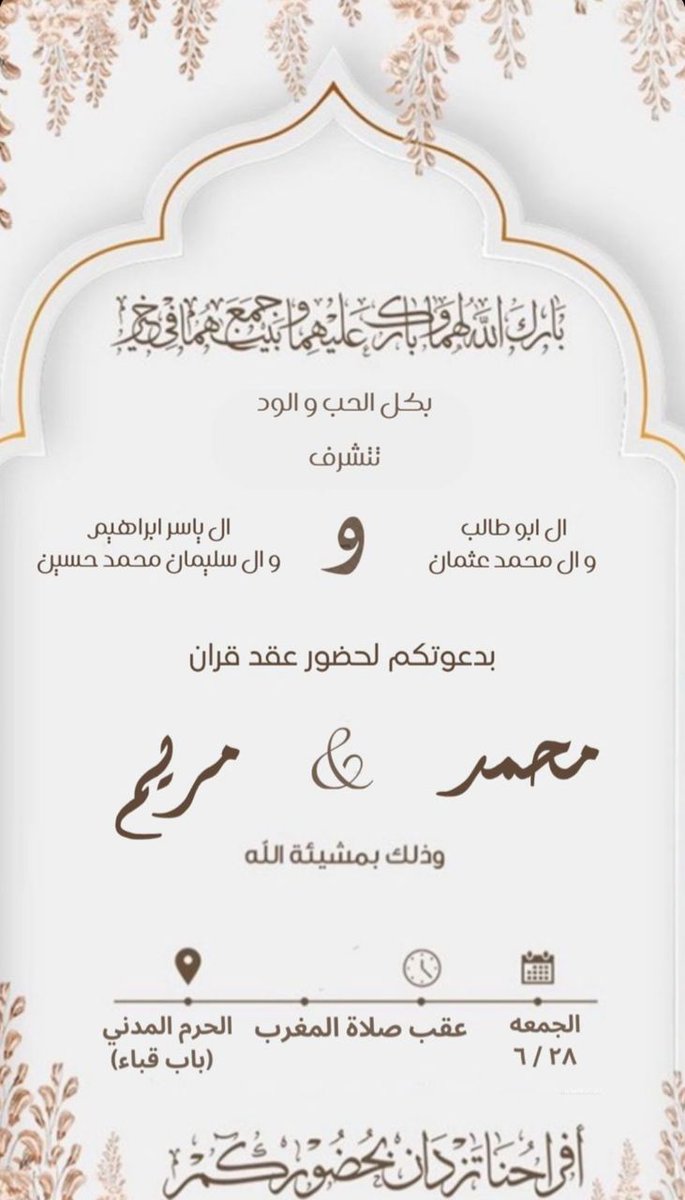 بَارَكَ اللَّهُ لَهُمَا وَبَارَكَ عَلَيْهِمَا وَجَمَعَ بَيْنَهُمَا فِي خَيْرٍ
بكل الحب و الود
نتشرف
ال ابو طالب
و ال محمد عثمان
و
ال ياسر ابراهيم
و ال سليمان محمد حسين
بدعوتكم لحضور عقد قران
محمد & مريم
وذلك بمشيئة الله
الجمعه
٢٨ / ٦
عقب صلاة المغرب
الحرم المدني
(باب قباء)
أفراحنا تزدان بحضوركم